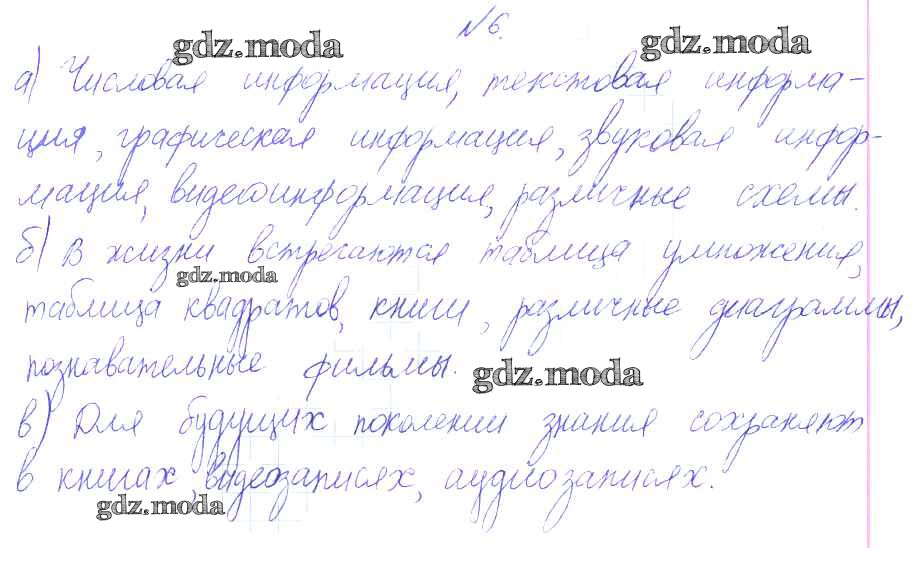 №6.
gdz.moda gdz.moda
а) Числовая информация, текстовая информа-
ция, графическая информация, звуковая инфор-
мация, видеоинформация, различные схемы.
б) В жизни встречаются таблица умножения,
gdz.moda
таблица квадратов, книги, различные диаграммы,
познавательные фильмы.
gdz.moda
в) Для будущих поколении знания сохраняют
в книгах, видеозаписях, аудиозаписях.
gdz.moda